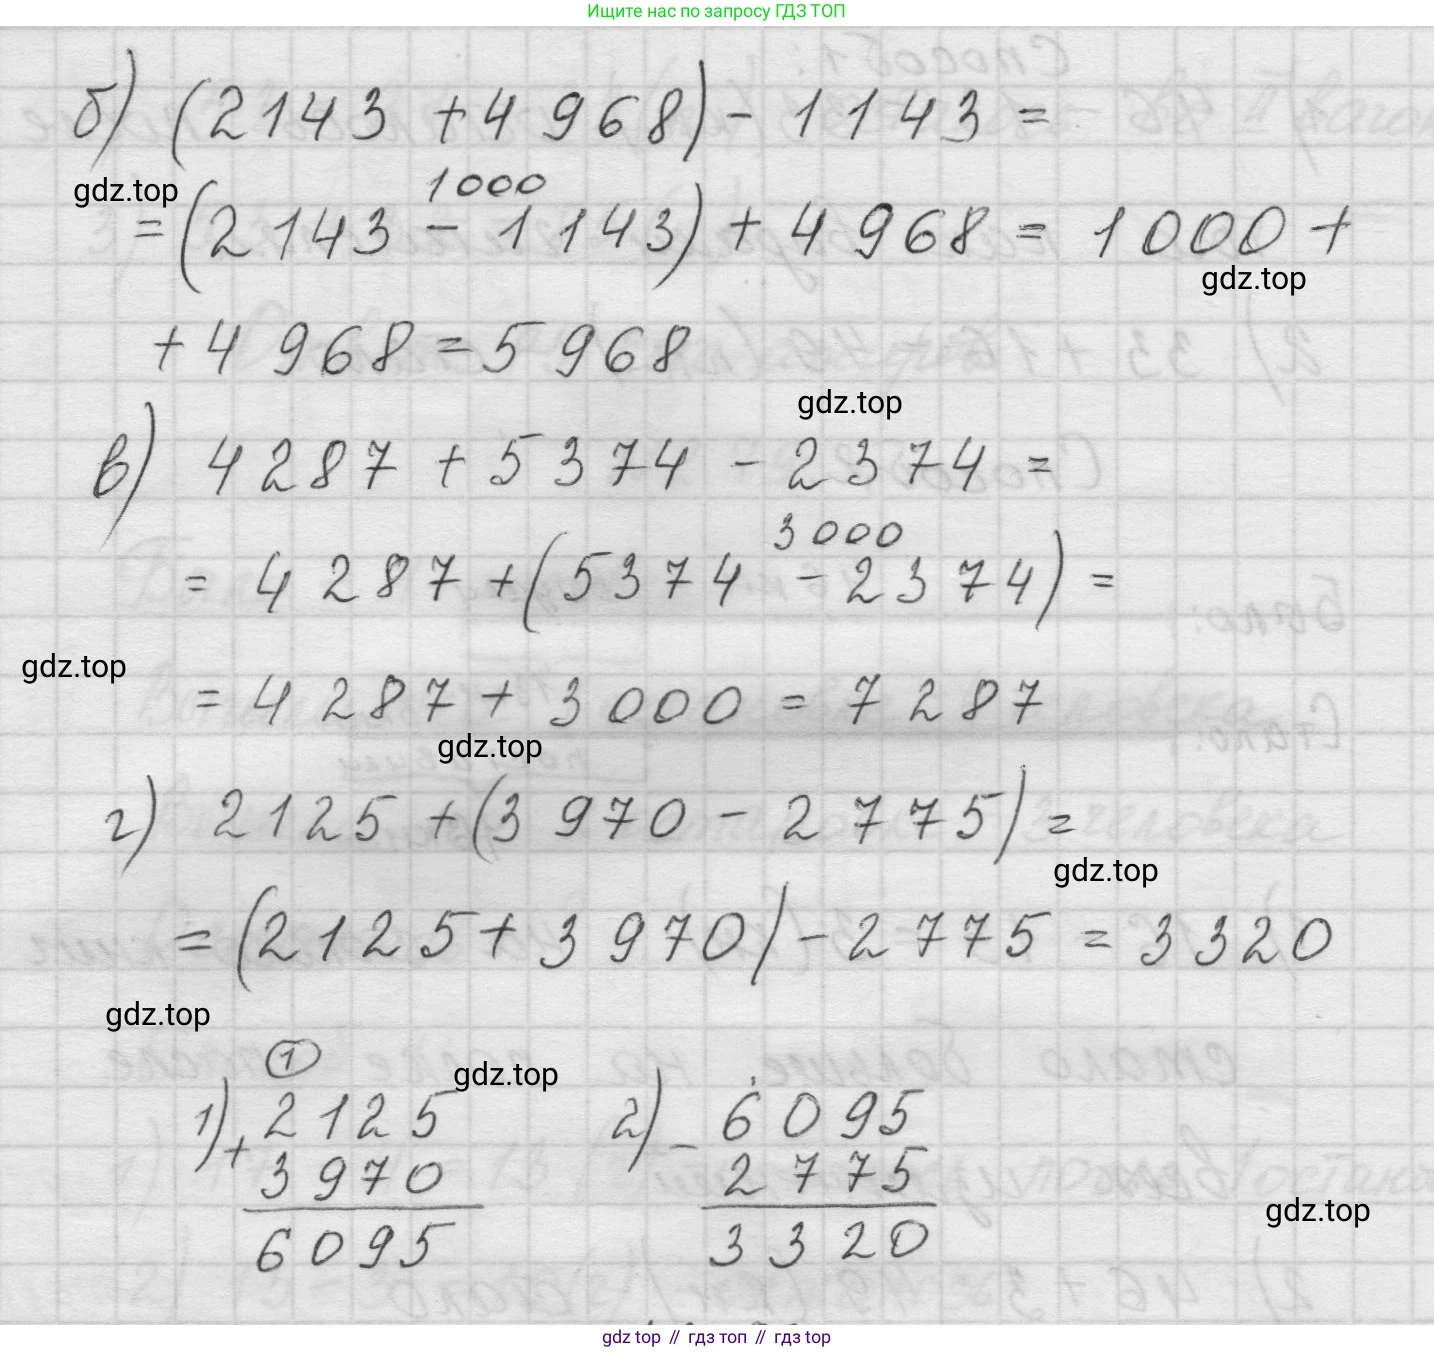 Ищите нас по запросу ГДЗ ТОП
б) (2143 + 4968) - 1143 =
gdz.top
1000
= (2143 - 1143) + 4968 = 1000 +
gdz.top
+ 4968 = 5968
gdz.top
в) 4287 + 5374 - 2374 =
3000
= 4287 + (5374 - 2374) =
gdz.top
= 4287 + 3000 = 7287
gdz.top
г) 2125 + (3970 - 2775) =
gdz.top
= (2125 + 3970) - 2775 = 3320
gdz.top
1
gdz.top
1) + 2125 2) - 6095
3970 2775
gdz.top
6095 3320
gdz top // гдз топ // gdz.top